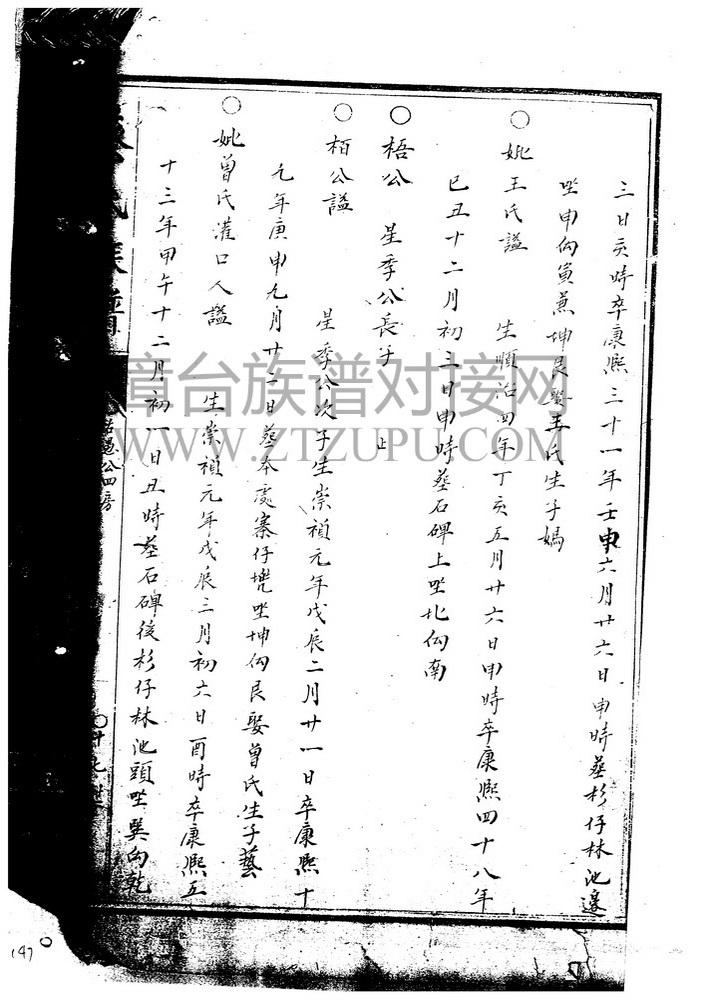 三日亥時卒康熙三十一年壬申六月廿六日申時葬杉仔林池邊
坐申向寅兼坤艮娶王氏生子媽
○妣王氏謚 生順治四年丁亥五月廿六日申時卒康熙四十八年
己丑十二月初三日申時葬石碑上坐北向南
○梧公 星季公長子 止
○栢公謚 星季公次子生崇禎元年戊辰二月廿一日卒康熙十
九年庚申九月廿二日葬本處寨仔坐坤向艮娶曾氏生子藝
○妣曾氏灌口人謚 生崇禎元年戊辰三月初六日酉時卒康熙五
十三年甲午十二月初一日丑時葬石碑後杉仔林池頭坐巽向乾
氏族譜
公四房
章台族谱对接网
WWW.ZTZUPU.COM